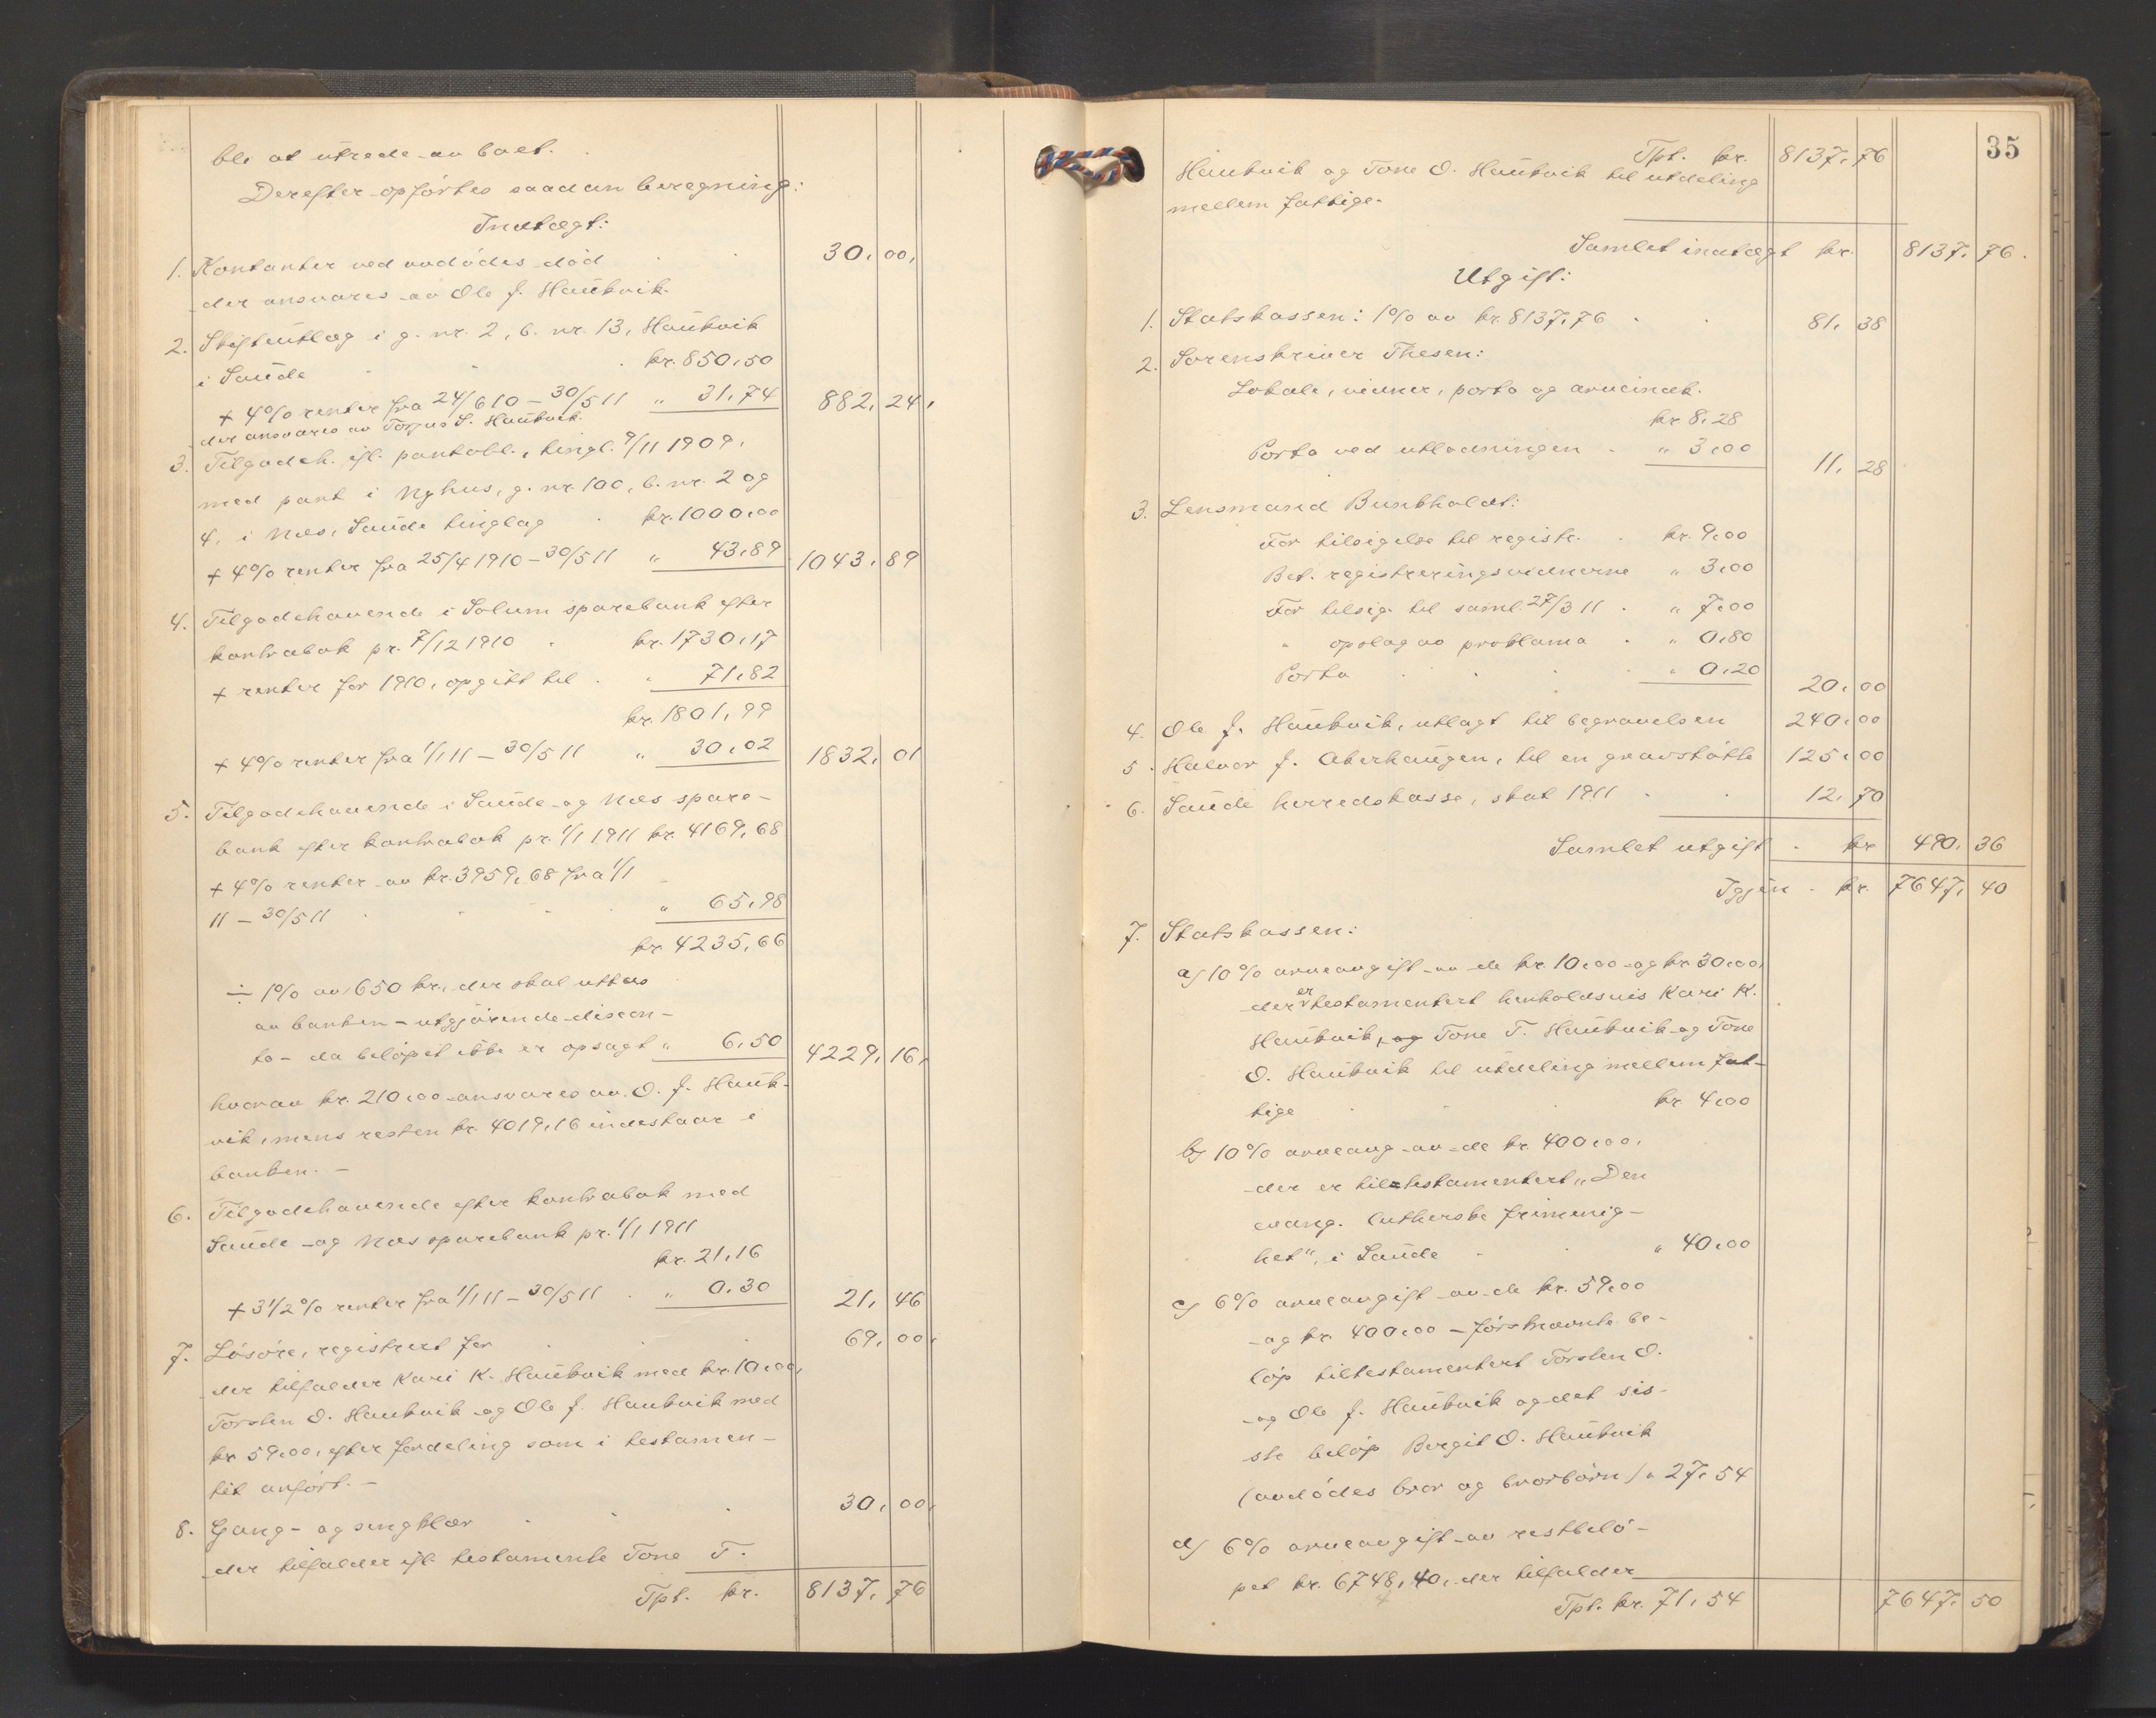 ble at utrede av boet.
Derefter opførtes saadan beregning:
Indtægt:
1. Kontanter ved avdødes død 30,00,
der ansvares av Ole J. Haukvik.
2. Skifteutlæg i g. nr. 2, b. nr. 13, Haukvik
i Saude kr. 850,50
+ 4% renter fra 24/6 10 – 30/5 11 „ 31,74 882,24,
der ansvares av Torjus S. Haukvik.
3. Tilgodeh. ifl. pantobl., tingl. 9/11 1909,
med pant i Nyhus, g. nr. 100, b. nr. 2 og
4, i Næs, Saude tinglag kr. 1000,00
+ 4% renter fra 25/4 1910 – 30/5 11 „ 43,89 1043,89
4. Tilgodehavende i Solum sparebank efter
kontrabok pr. 7/12 1910 kr. 1730,17
+ renter for 1910, opgitt til „ 71,82
kr. 1801,99
+ 4% renter fra 1/1 11 – 30/5 11 „ 30,02 1832,01
5. Tilgodehavende i Saude og Næs spare-
bank efter kontrabok pr. 1/1 1911 kr. 4169,68
+ 4% renter av kr. 3959,68 fra 1/1
11 – 30/5 11 „ 65,98
kr. 4235,66
÷ 1% av 650 kr., der skal uttas
av banken – utgjørende discon-
to – da beløpet ikke er opsagt „ 6,50 4229,16,
hvorav kr. 210,00 ansvares av O. J. Hauk-
vik, mens resten kr. 4019,16 indestaar i
banken. –
6. Tilgodehavende efter kontrabok med
Saude og Næs sparebank pr. 1/1 1911
kr. 21,16
+ 3 1/2% renter fra 1/1 11 – 30/5 11 „ 0,30 21,46
7. Løsøre, registrert for 69,00,
der tilfalder Kari K. Haukvik med kr. 10,00,
Torsten O. Haukvik og Ole J. Haukvik med
kr. 59,00, efter fordeling som i testamen-
tet anført. –
8. Gang- og sengklær 30,00,
der tilfalder ifl. testamente Tone T.
Tpt. kr. 8137,76
35
Tpt. kr. 8137,76
Haukvik og Tone O. Haukvik til utdeling
mellem fattige.
Samlet indtægt kr. 8137,76.
Utgift:
1. Statskassen: 1% av kr. 8137,76 81,38
2. Sorenskriver Thesen:
Lokale, vidner, porto og arveindk.
kr. 8,28
Porto ved utlodningen „ 3,00 11,28
3. Lensmand Bunkholdt:
For tilsigelse til registr. kr. 9,00
Bet. registreringsvidnerne „ 3,00
For tilsig. til saml. 27/3 11 „ 7,00
„ opslag av proklama „ 0,80
Porto „ 0,20 20,00
4. Ole J. Haukvik, utlagt til begravelsen 240,00
5. Halvor J. Aterhaugen, til en gravstøtte 125,00
6. Saude herredskasse, skat 1911 12,70
Samlet utgift kr. 490,36
Igjen kr. 7647,40
7. Statskassen:
a) 10% arveavgift av de kr. 10,00 og kr. 30,00,
der er testamentert henholdsvis Kari K.
Haukvik, og Tone T. Haukvik og Tone
O. Haukvik til utdeling mellem fat-
tige kr. 4,00
b) 10% arveavg. av de kr. 400,00,
der er tiltestamentert „Den
evang. lutherske frimenig-
het", i Saude „ 40,00
c) 6% arveavgift av de kr. 59,00
og kr. 400,00 – førstnævnte be-
løp tiltestamentert Torsten O.
og Ole J. Haukvik og det sis-
ste beløp Bergit O. Haukvik
(avdødes bror og brorbørn) „ 27,54
d) 6% arveavgift av restbelø-
pet kr. 6748,40, der tilfalder
Tpt. kr. 71,54 7647,50